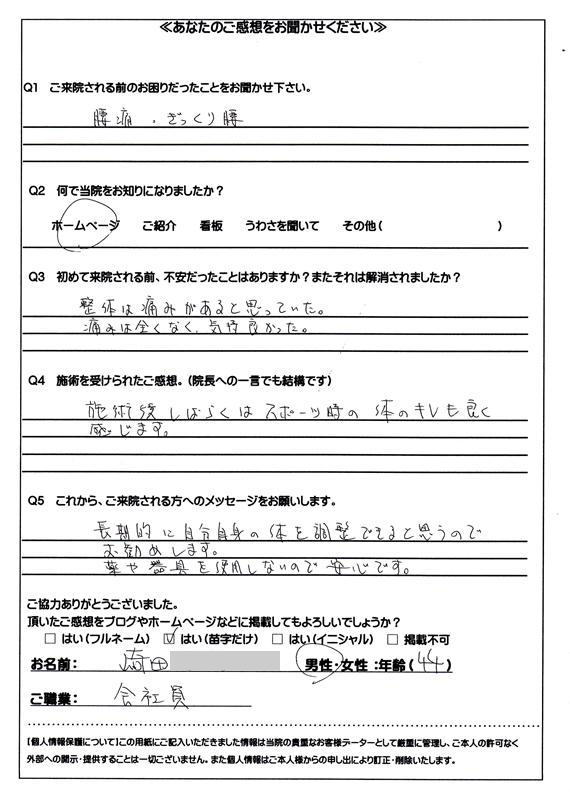 ≪あなたのご感想をお聞かせください≫
Q1 ご来院される前のお困りだったことをお聞かせ下さい。
腰痛 . ぎっくり腰
Q2 何で当院をお知りになりましたか？
ホームページ ご紹介 看板 うわさを聞いて その他( )
Q3 初めて来院される前、不安だったことはありますか？またそれは解消されましたか？
整体は痛みがあると思っていた。
痛みは全くなく、気持良かった。
Q4 施術を受けられたご感想。(院長への一言でも結構です)
施術後しばらくはスポーツ時の体のキレも良く
感じます。
Q5 これから、ご来院される方へのメッセージをお願いします。
長期的に自分自身の体を調整できると思うので
お勧めします。
薬や器具を使用しないので安心です。
ご協力ありがとうございました。
頂いたご感想をブログやホームページなどに掲載してもよろしいでしょうか？
□ はい(フルネーム) ☑ はい(苗字だけ) □ はい(イニシャル) □ 掲載不可
お名前： 崎田 男性・女性：年齢(44)
ご職業： 会社員
【個人情報保護について】この用紙にご記入いただきました情報は当院の貴重なお客様データーとして厳重に管理し、ご本人の許可なく
外部への開示・提供することは一切ございません。また個人情報はご本人様からの申し出により訂正・削除いたします。